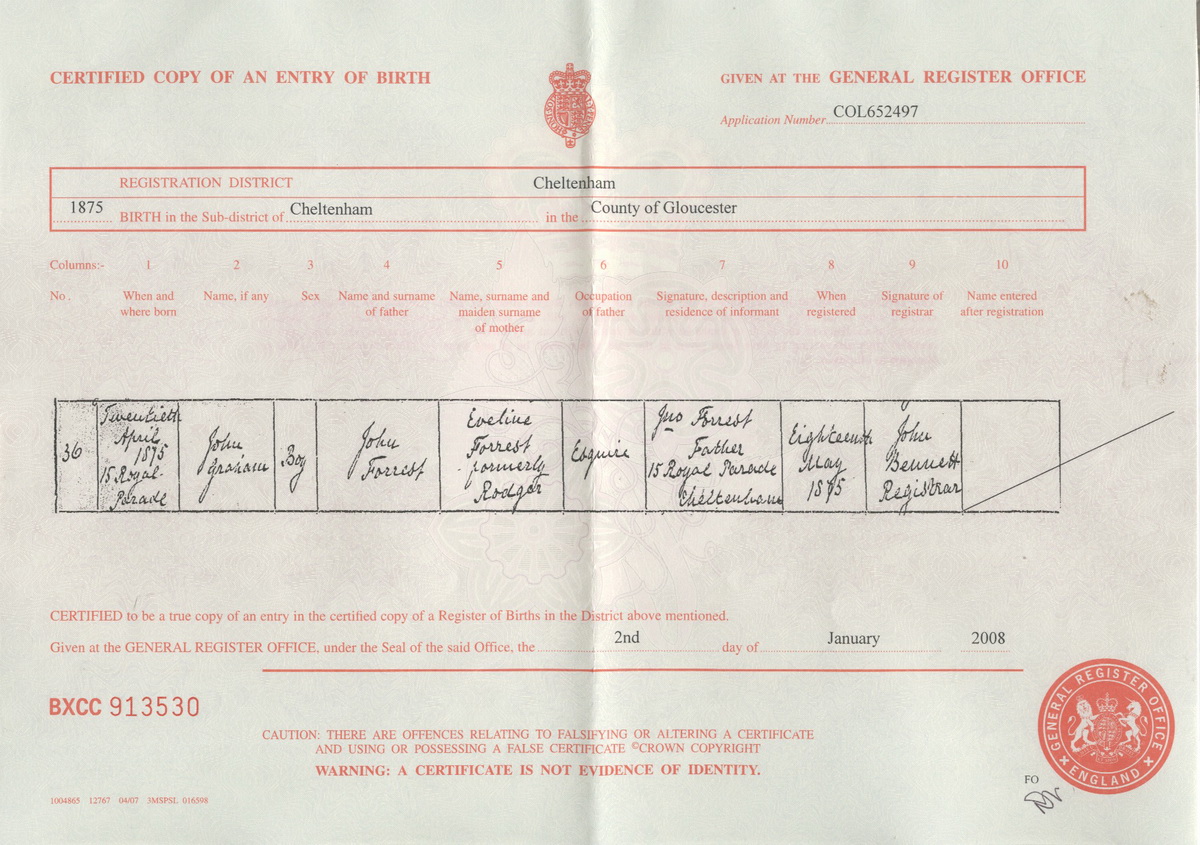 CERTIFIED COPY OF AN ENTRY OF BIRTH
GIVEN AT THE GENERAL REGISTER OFFICE
Application Number COL652497
REGISTRATION DISTRICT Cheltenham
1875 BIRTH in the Sub-district of Cheltenham in the County of Gloucester
Columns:- 1 2 3 4 5 6 7 8 9 10
No. When and where born
Name, if any
Sex
Name and surname of father
Name, surname and maiden surname of mother
Occupation of father
Signature, description and residence of informant
When registered
Signature of registrar
Name entered after registration
36
Twentieth
April
1875
15 Royal
Parade
John
Graham
Boy
John
Forrest
Eveline
Forrest
formerly
Rodger
Esquire
Jno Forrest
Father
15 Royal Parade
Cheltenham
Eighteenth
May
1875
John
Bennett
Registrar
CERTIFIED to be a true copy of an entry in the certified copy of a Register of Births in the District above mentioned.
Given at the GENERAL REGISTER OFFICE, under the Seal of the said Office, the 2nd day of January 2008
BXCC 913530
CAUTION: THERE ARE OFFENCES RELATING TO FALSIFYING OR ALTERING A CERTIFICATE
AND USING OR POSSESSING A FALSE CERTIFICATE ©CROWN COPYRIGHT
WARNING: A CERTIFICATE IS NOT EVIDENCE OF IDENTITY.
1004865 12767 04/07 3MSPSL 016598
GENERAL REGISTER OFFICE
ENGLAND
FO